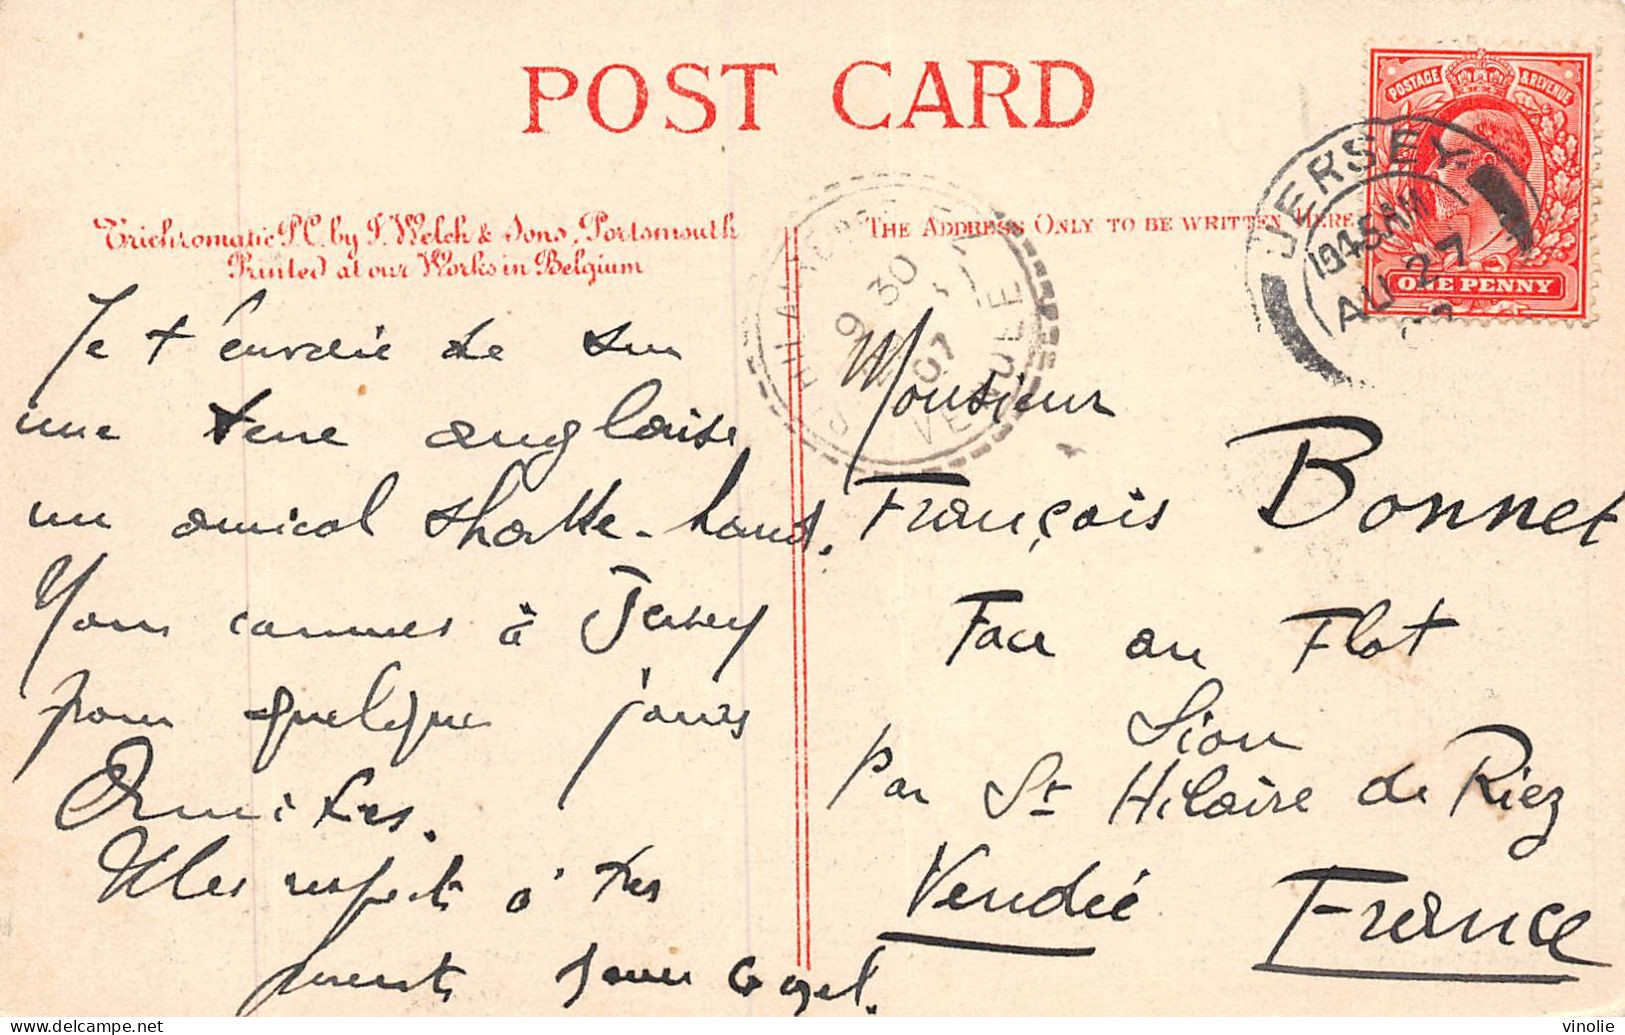 POST CARD
Trichromatic P.C. by J. Welch & Sons, Portsmouth
Printed at our Works in Belgium
THE ADDRESS ONLY TO BE WRITTEN HERE
POSTAGE & REVENUE
ONE PENNY
JERSEY
10 45 AM
AU 27
9 30
07
VENDÉE
Je t'envoie de sur
une terre anglaise
un amical shake-hand.
Nous sommes à Jersey
pour quelques jours
Amitiés.
Mes respects à tes
parents
Monsieur
François Bonnet
Face au Flot
Sion
par St Hilaire de Riez
Vendée
France
delcampe.net
vinolie